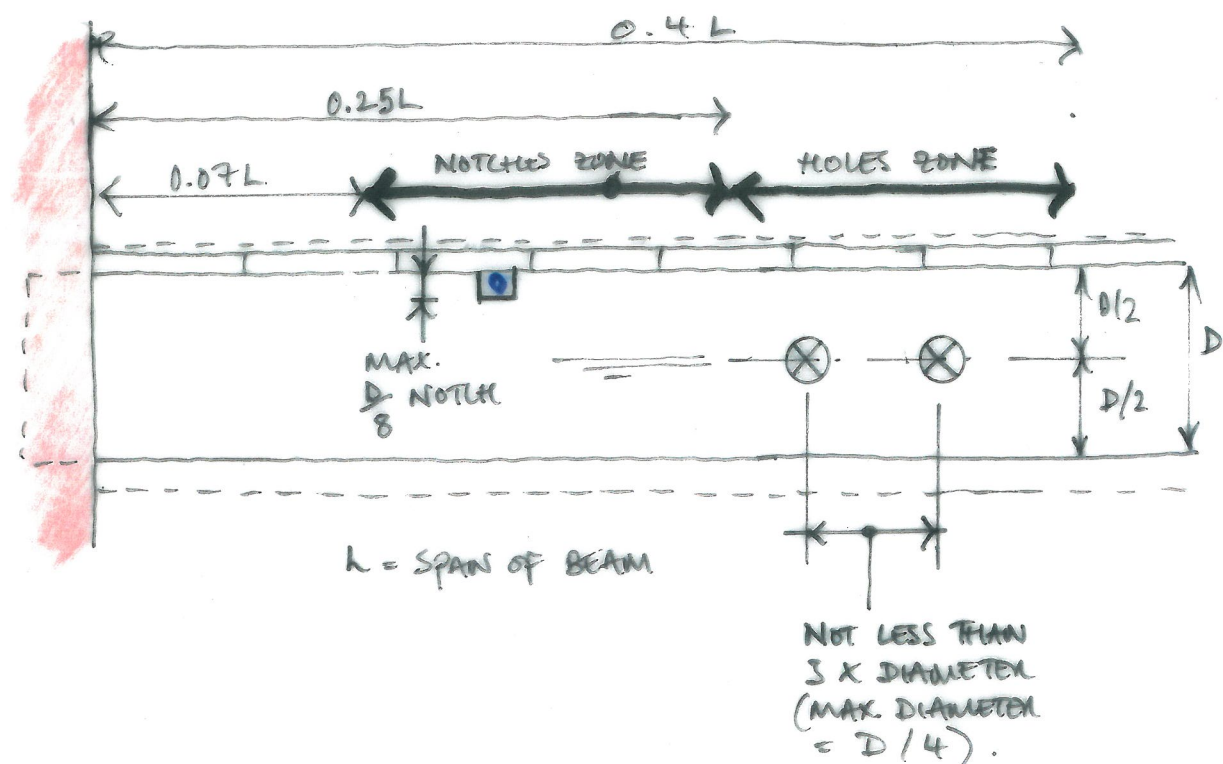 0.4 L
0.25L
0.07 L
NOTCHES ZONE
HOLES ZONE
D/2
D
D/2
MAX.
D
8
NOTCH
L = SPAN OF BEAM
NOT LESS THAN
3 X DIAMETER
(MAX. DIAMETER
= D/4).